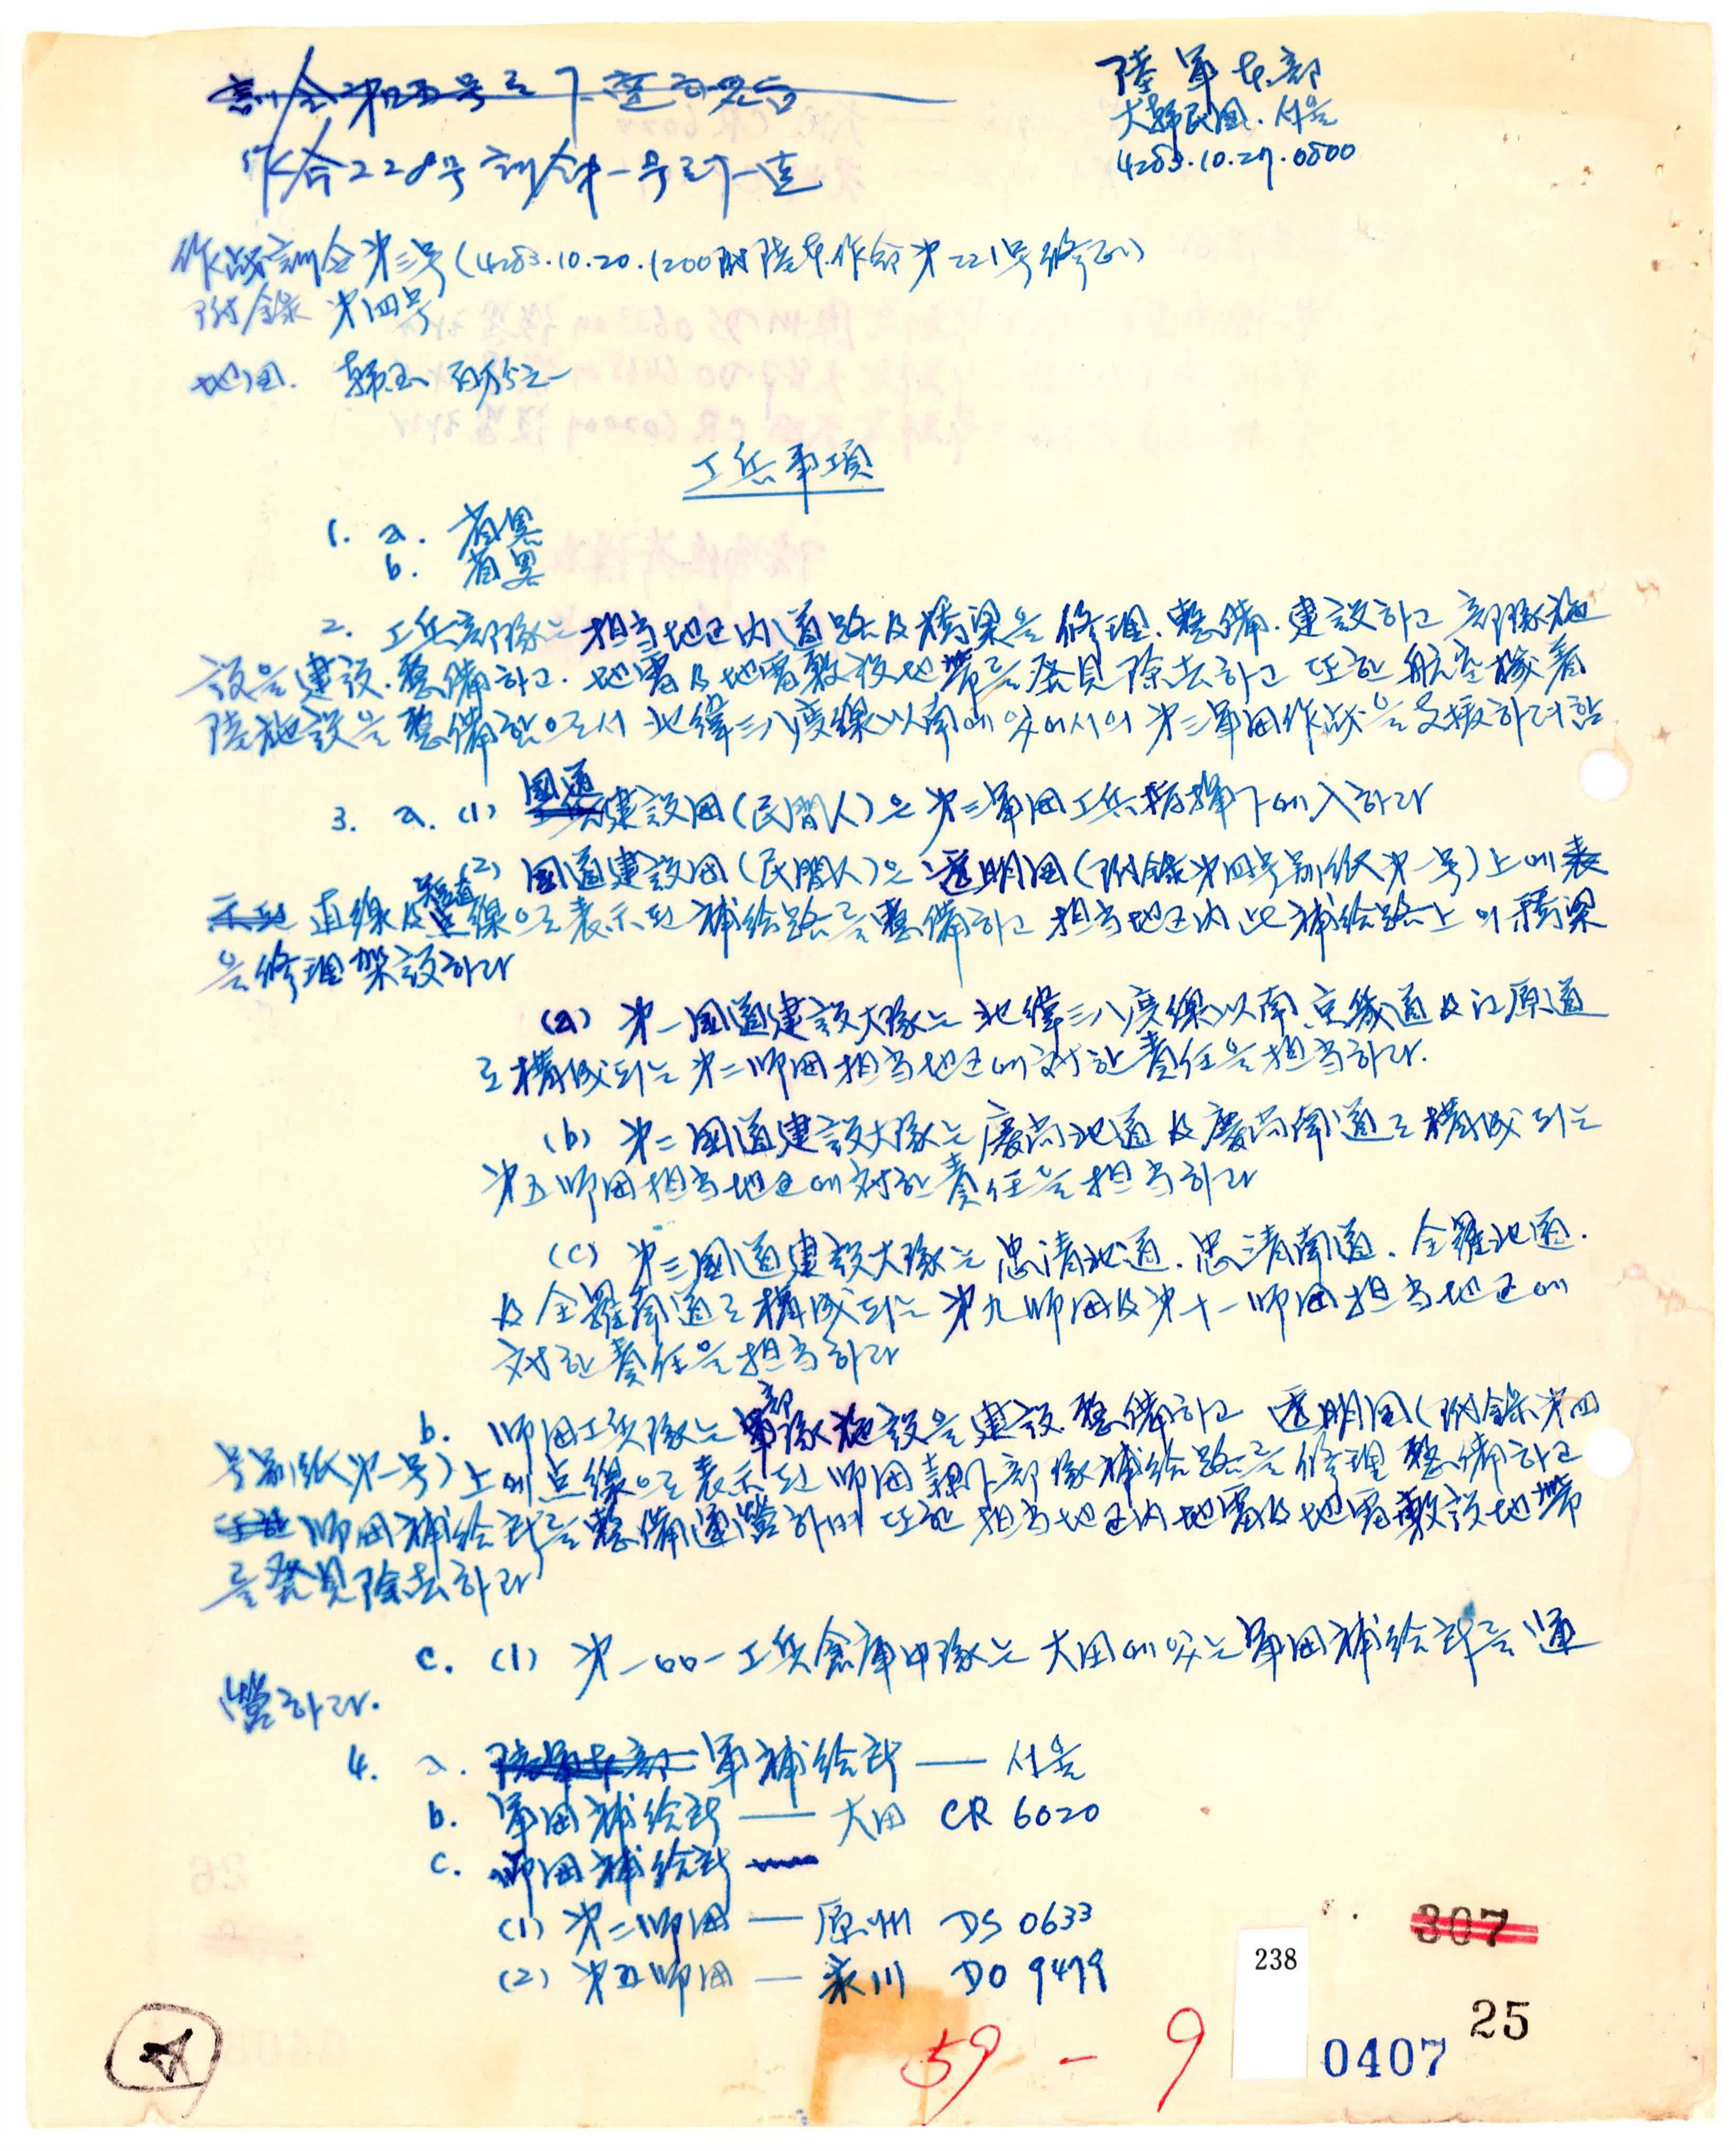 陸軍本部
大韓民國. 서울
4283.10.27.0800
作命228号 訓令第一号로
作戰訓令第三号(4283.10.20.1200附陸本作命第221号修正)
附錄 第四号
地図. 韓国 百万分之一
工兵事項
1. a. 省畧
b. 省畧
2. 工兵部隊는 担当地区内道路及橋梁을 修理.整備.建設하고 部隊施
設을 建設.整備하고. 地雷及地雷敷設地帶를 發見除去하고 또한 航空機着
陸施設을 整備함으로서 北緯三八度線以南에 있어서의 第三軍団作战을 支援하려함
3. a. (1) 國道建設団(民間人)은 第三軍団工兵指揮下에 入하라
(2) 國道建設団(民間人)은 透明図(附錄第四号別紙第一号)上에 表
示된 直線及鎖線으로 表示된 補給路를 整備하고 担当地区内 此 補給路上의 橋梁
을 修理架設하라
(a) 第一國道建設大隊는 北緯三八度線以南 京畿道及江原道
로 構成되는 第二師団担当地区에 対한 責任을 担当하라.
(b) 第二國道建設大隊는 慶尚北道及慶尚南道로 構成되는
第五師団担当地区에 対한 責任을 担当하라
(c) 第三國道建設大隊는 忠清北道. 忠清南道. 全羅北道.
及 全羅南道로 構成되는 第九師団及第十一師団担当地区에
対한 責任을 担当하라
b. 師団工兵隊는 部隊施設을 建設整備하고 透明図(附錄第四
号別紙第一号)上에 点線으로 表示된 師団隷下部隊補給路를 修理整備하고
師団補給所를 整備運營하며 또한 担当地区内地雷及地雷敷設地帶
를 發見除去하라
c. (1) 第一〇〇一工兵倉庫中隊는 大田에 있는 軍団補給所를 運
營하라.
4. a. 軍補給所 — 서울
b. 軍団補給所 — 大田 CR 6020
c. 師団補給所
(1) 第二師団 — 原州 DS 0633
(2) 第五師団 — 永川 DO 9479
307
238
25
0407
59 - 9